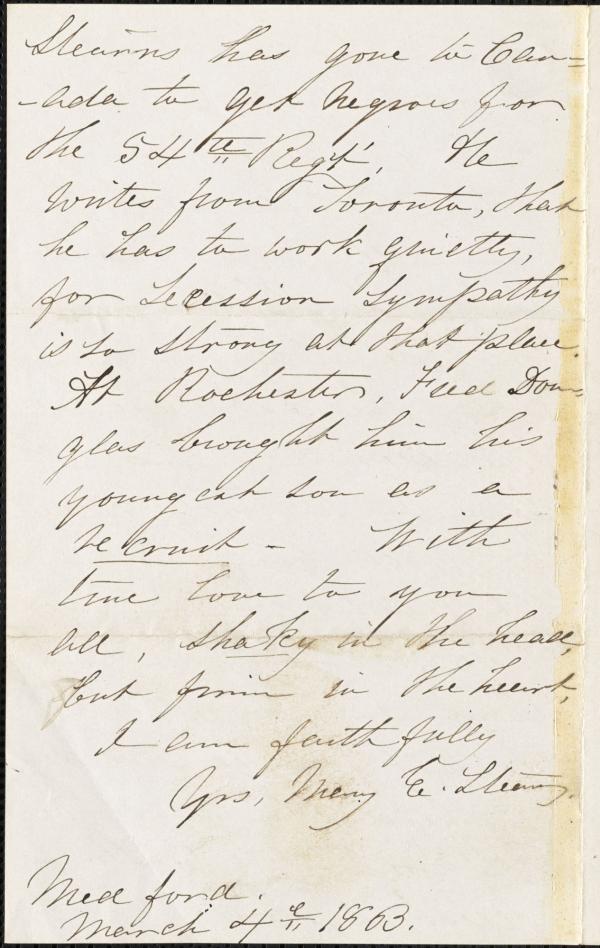 Stearns has gone to Can=
-ada to get negroes for
the 54th Regt. He
writes from Toronto, that
he has to work quietly,
for Secession sympathy
is so strong at that place.
At Rochester, Fred Dou-
glas brought him his
youngest son as a
recruit - With
true love to you
all, shaky in the head,
but firm in the heart,
I am faithfully
Yrs, Mary E. Stearns.
Medford.
March 4th 1863.